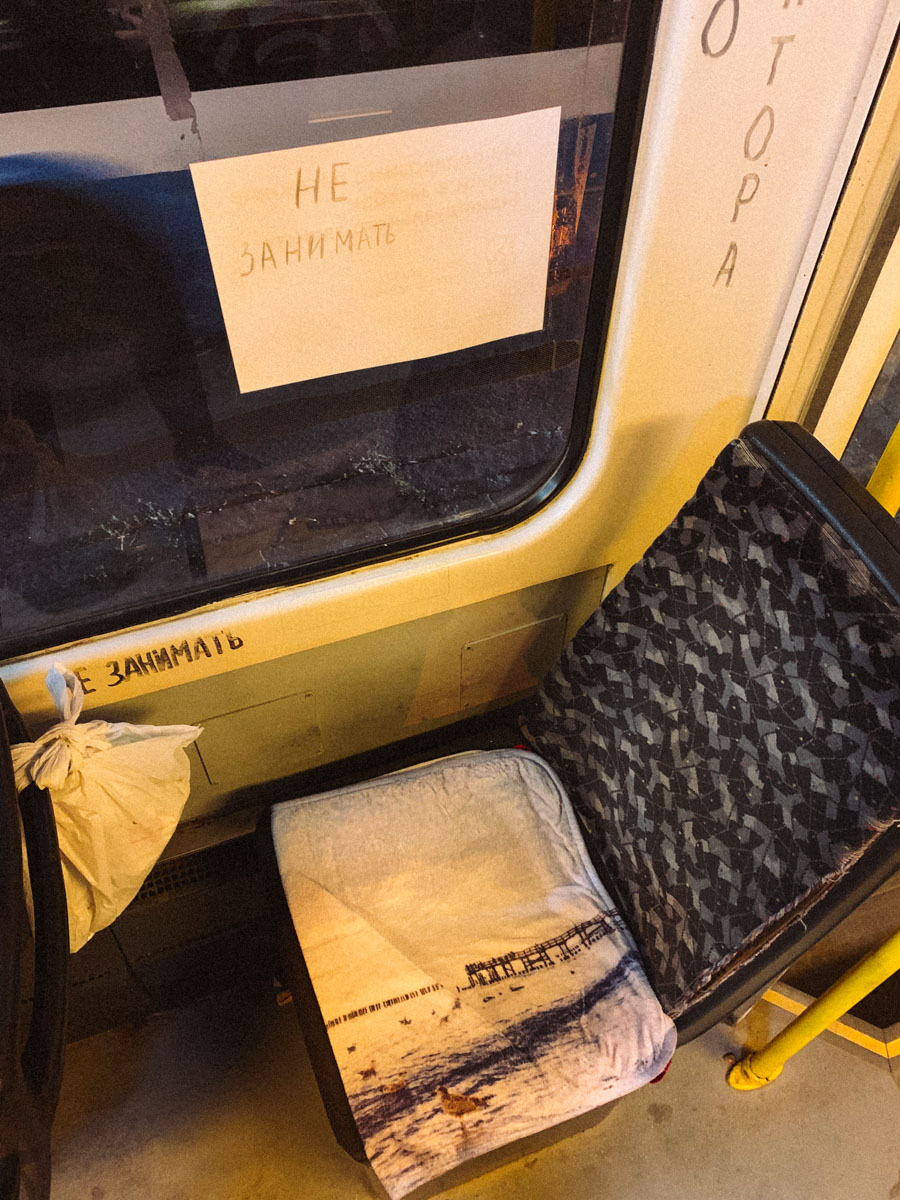 НЕ
ЗАНИМАТЬ
О
ТОРА
Е ЗАНИМАТЬ